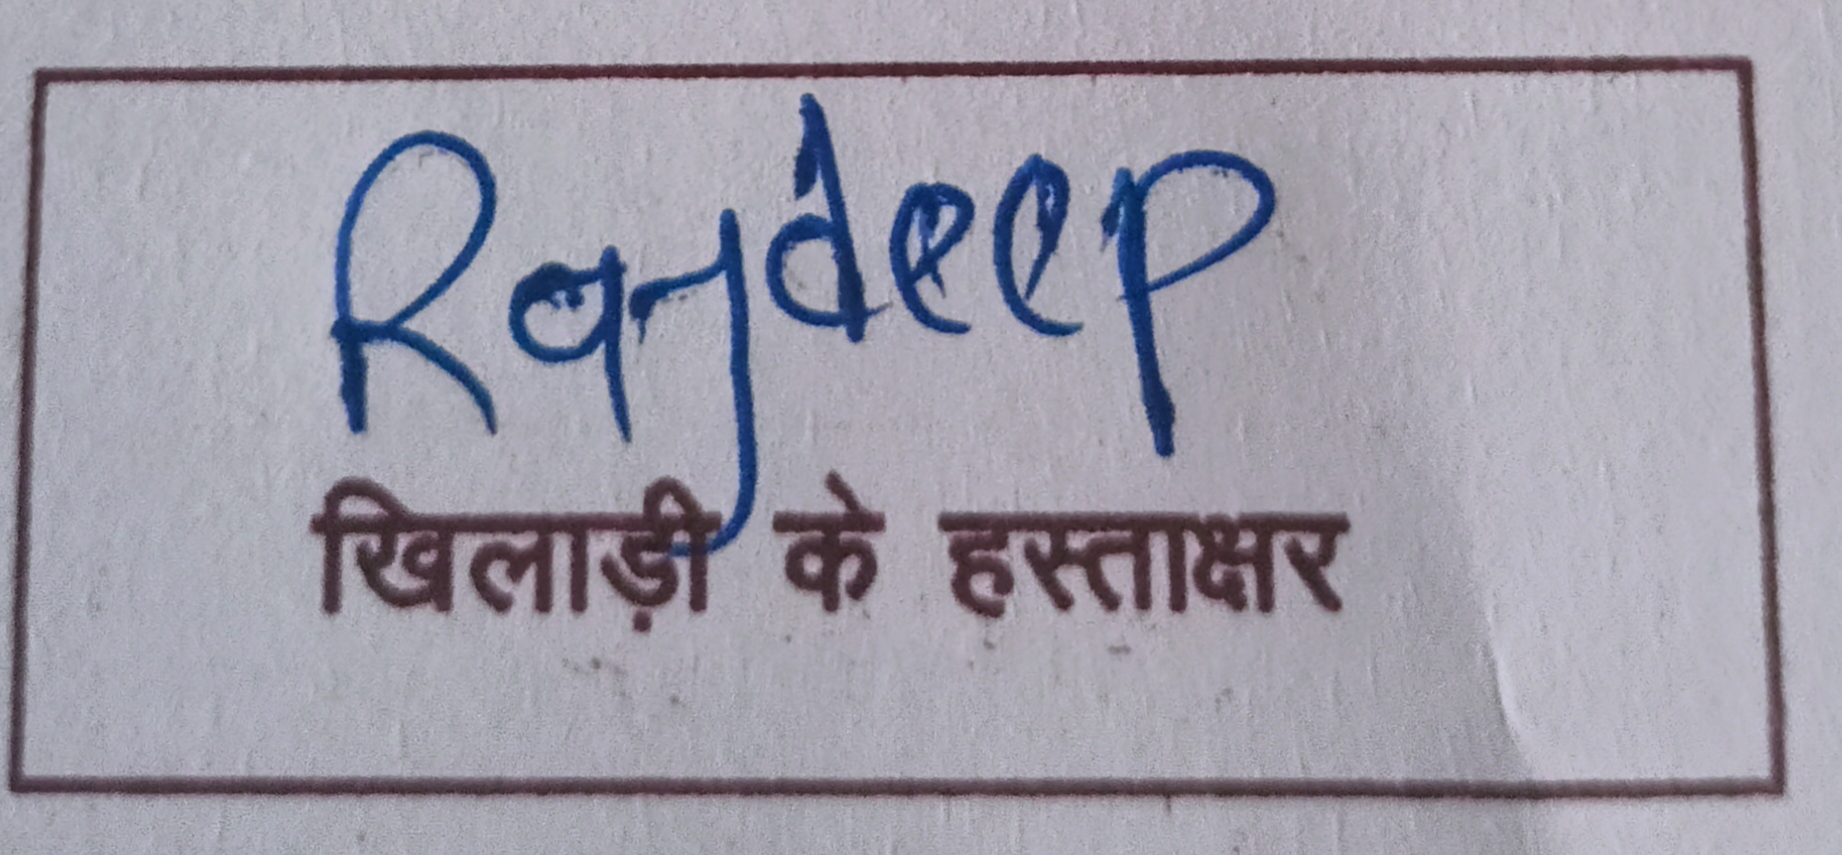 Rajdeep
खिलाड़ी के हस्ताक्षर